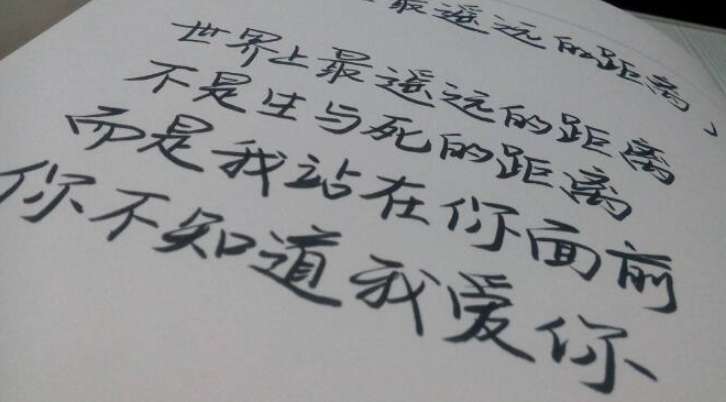 最遥远的距离」
世界上最遥远的距离
不是生与死的距离
而是我站在你面前
你不知道我爱你